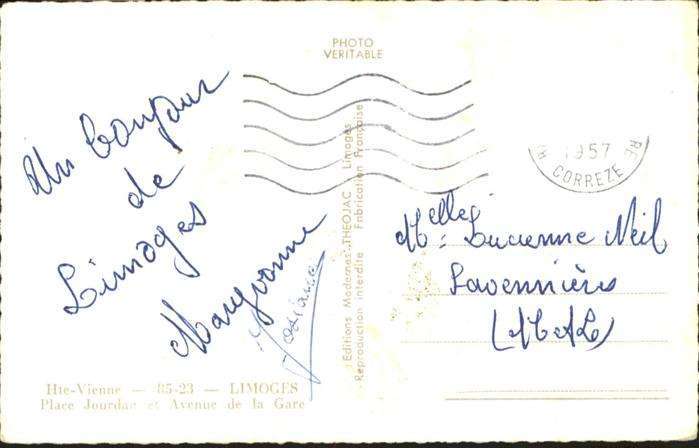 PHOTO
VERITABLE
Un bonjour
de
Limoges
Maryvonne
Josiane
Hte-Vienne — 85-23 — LIMOGES
Place Jourdan et Avenue de la Gare
Editions Modernes THEOJAC Limoges
Reproduction interdite Fabrication Française
1957
CORREZE
RE
Melles Lucienne Neil
Savennières
(M&L)